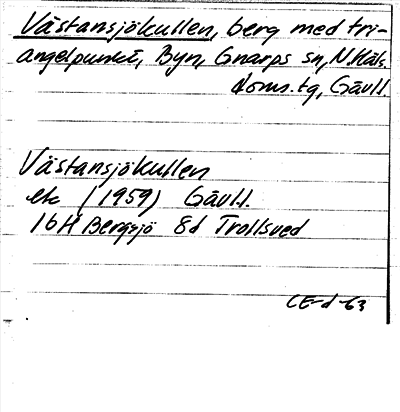 Västansjökullen, berg med tri-
angelpunkt, Byn, Gnarps sn, N. Häls.
doms.tg, Gävl.
Västansjökullen
ek (1959) Gävl.
16H Bergsjö 8d Trollsved
CE-d-63